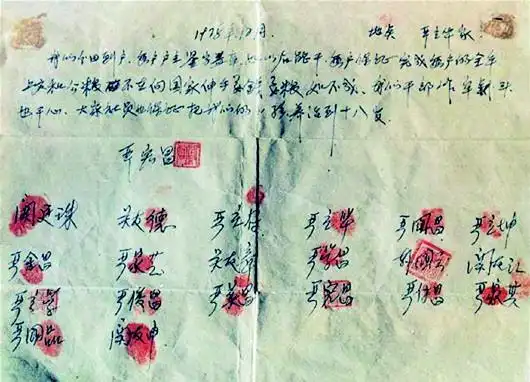 1978年12月. 地点 严立华家.
我们分田到户,每户户主签字盖章,如以后能干,每户保证完成每户的全年
上交和公粮,不在向国家伸手要钱要粮,如不成,我们干部作牢刹头
也干心,大家社员也保证把我们的小孩养活到十八岁.
严宏昌
关廷珠 关友德 严立符 严立华 严国昌 严立坤
严金昌 严家芝 关友章 严学昌 韩国云 关友江
严立学 严俊昌 严美昌 严宏昌 严付昌 严家其
严国品 关友申